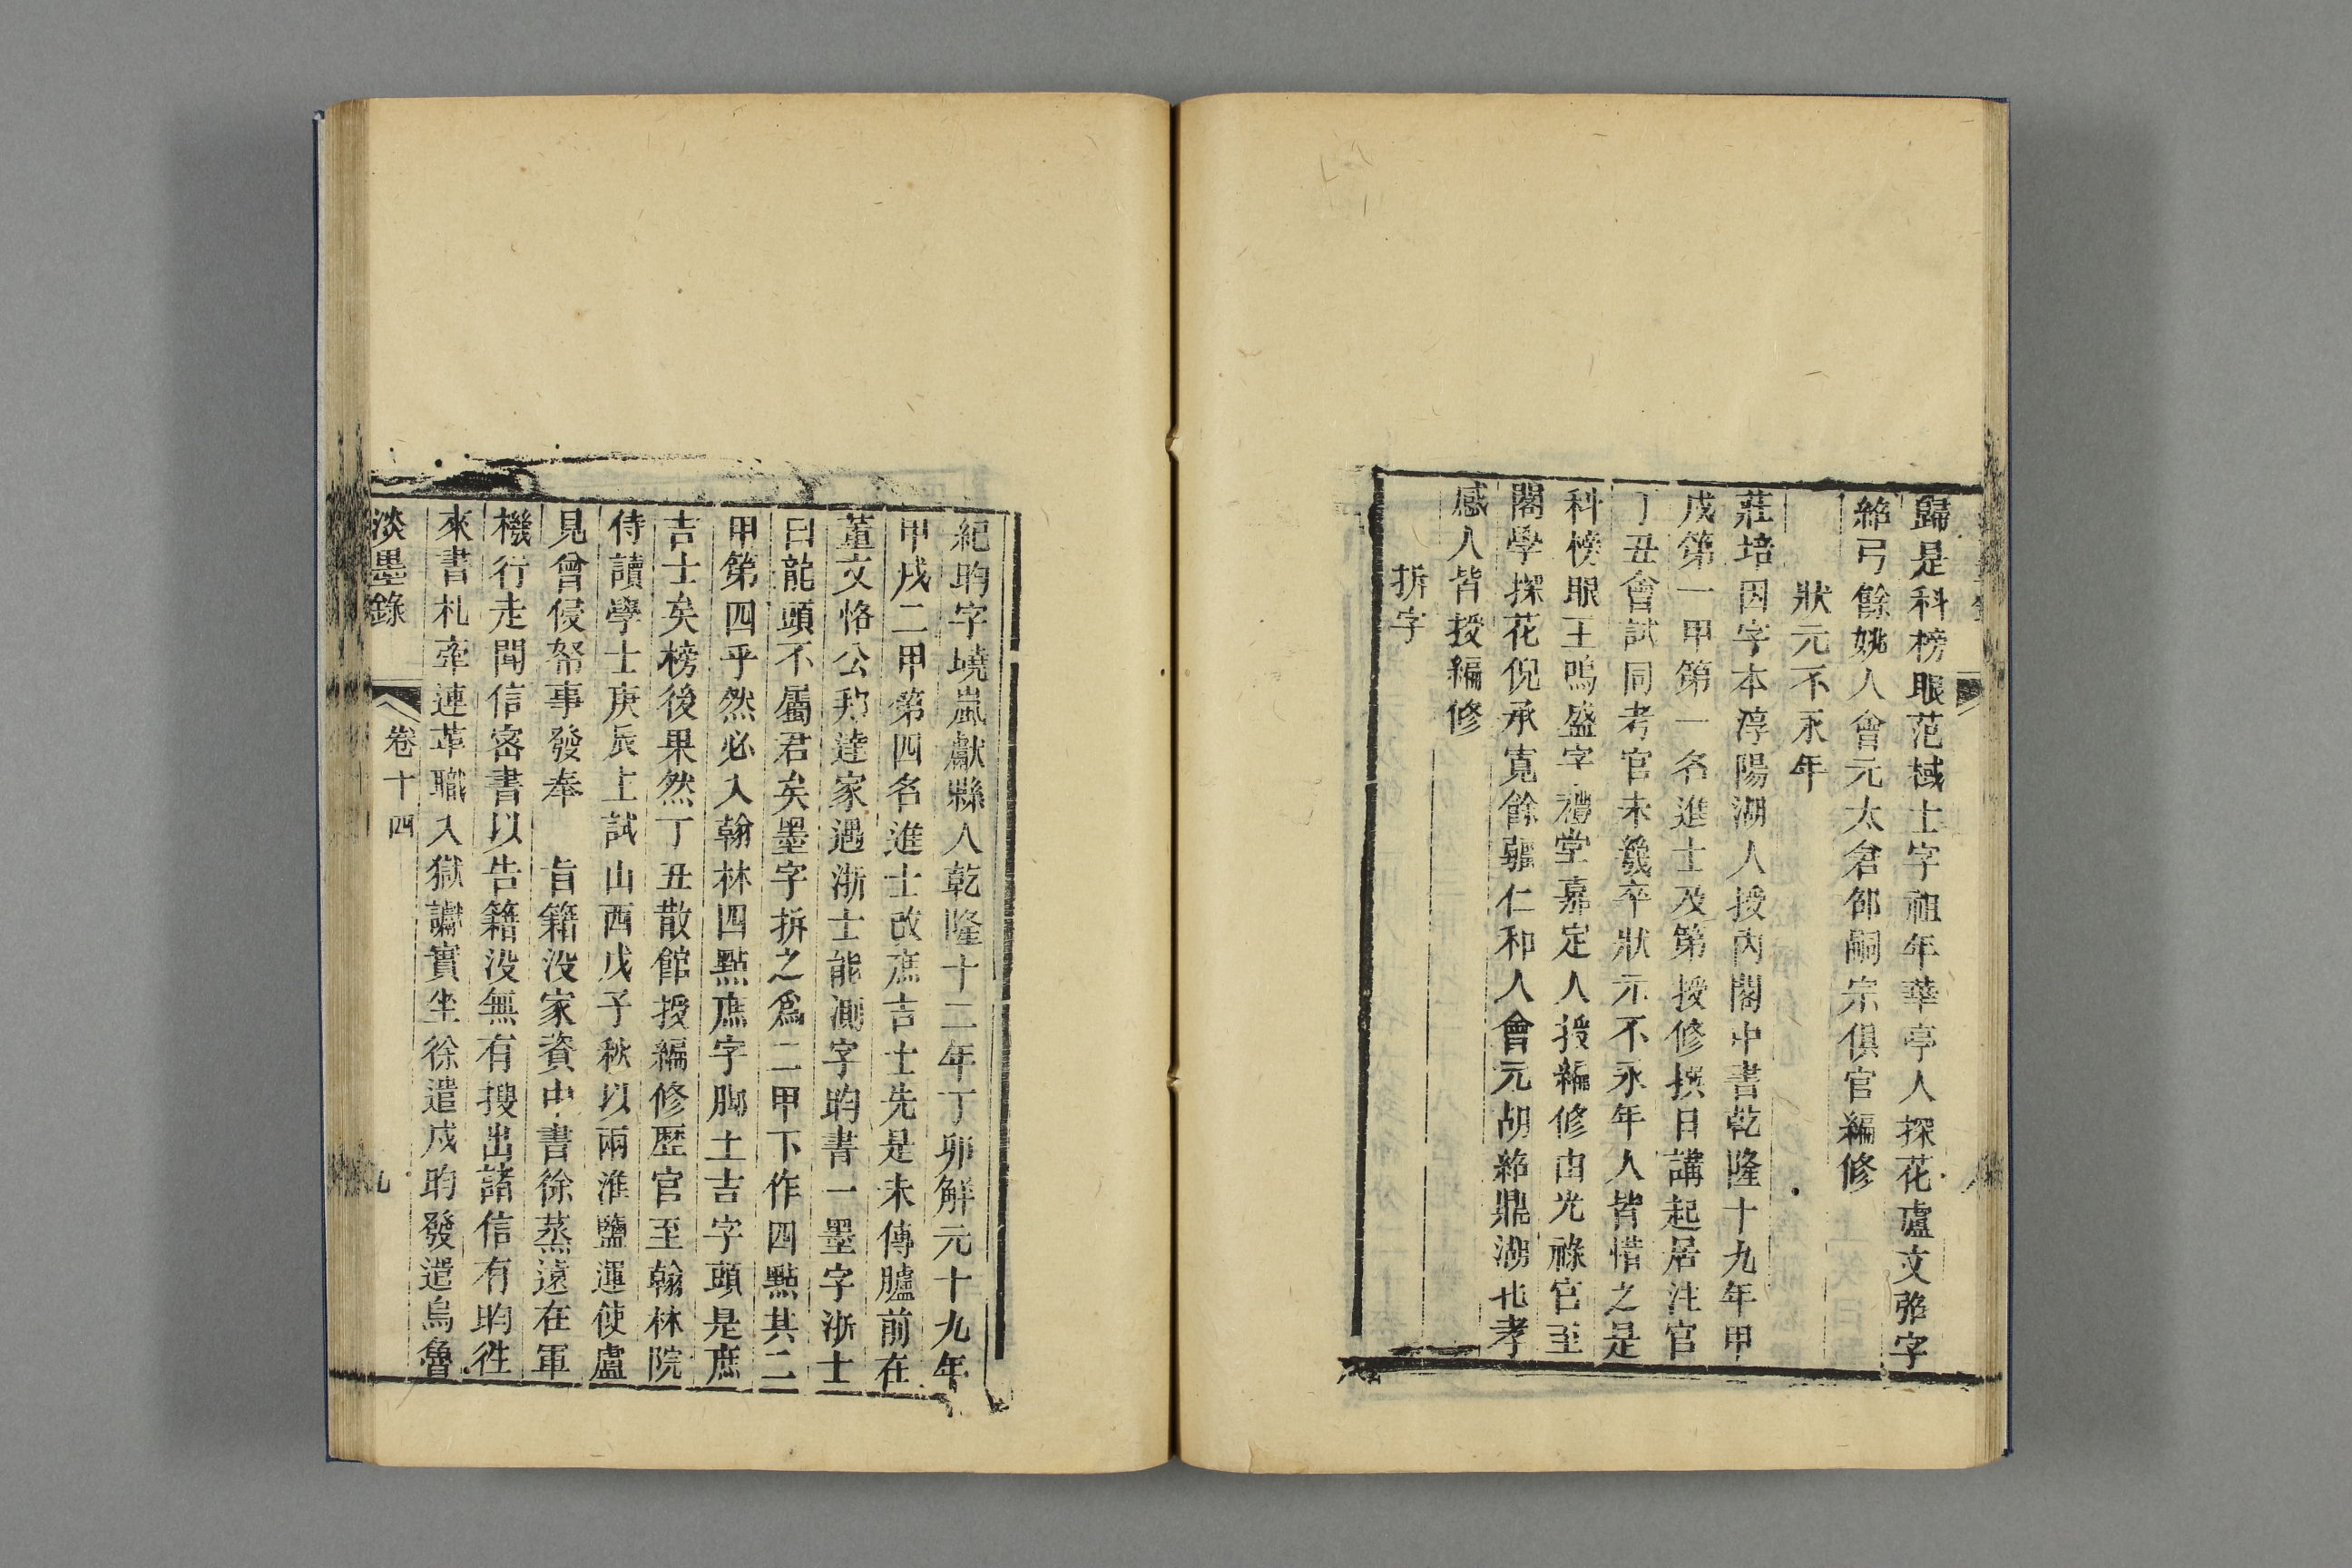 歸是科榜眼范棫士字祖年華亭人探花盧文弨字
紹弓餘姚人會元太倉邵嗣宗俱官編修
狀元不永年
莊培因字本淳陽湖人授內閣中書乾隆十九年甲
戌第一甲第一名進士及第授修撰日講起居注官
丁丑會試同考官未幾卒狀元不永年人皆惜之是
科榜眼王鳴盛字禮堂嘉定人授編修由光祿官至
閣學探花倪承寬餘疆仁和人會元胡紹鼎湖北孝
感人皆授編修
拆字
紀昀字堯嵐獻縣人乾隆十二年丁卯解元十九年
甲戌二甲第四名進士改庶吉士先是未傳臚前在
董文恪公邦達家遇浙士能測字昀書一墨字浙士
曰龍頭不屬君矣墨字拆之爲二甲下作四點其二
甲第四乎然必入翰林四點庶字脚士吉字頭是庶
吉士矣榜後果然丁丑散館授編修歷官至翰林院
侍讀學士庚辰主試山西戊子秋以兩淮鹽運使盧
見曾侵帑事發奉　旨籍没家資中書徐蒸遠在軍
機行走聞信密書以告籍没無有搜出諸信有昀徃
來書札牽連革職入獄讞實坐徐遣戍昀發遣烏魯
淡墨錄　卷十四　九